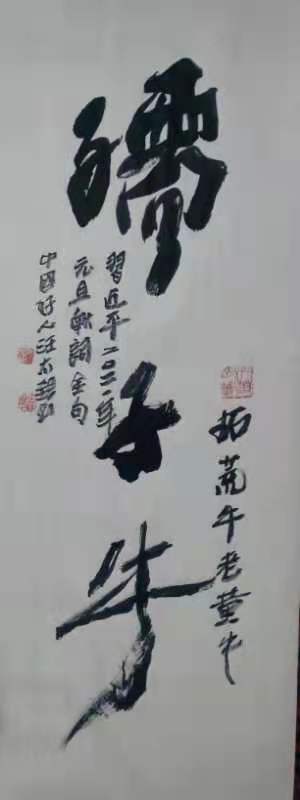 拓荒牛老黄牛
孺子牛
習近平二〇二一年
元旦献詞金句
中國好人汪